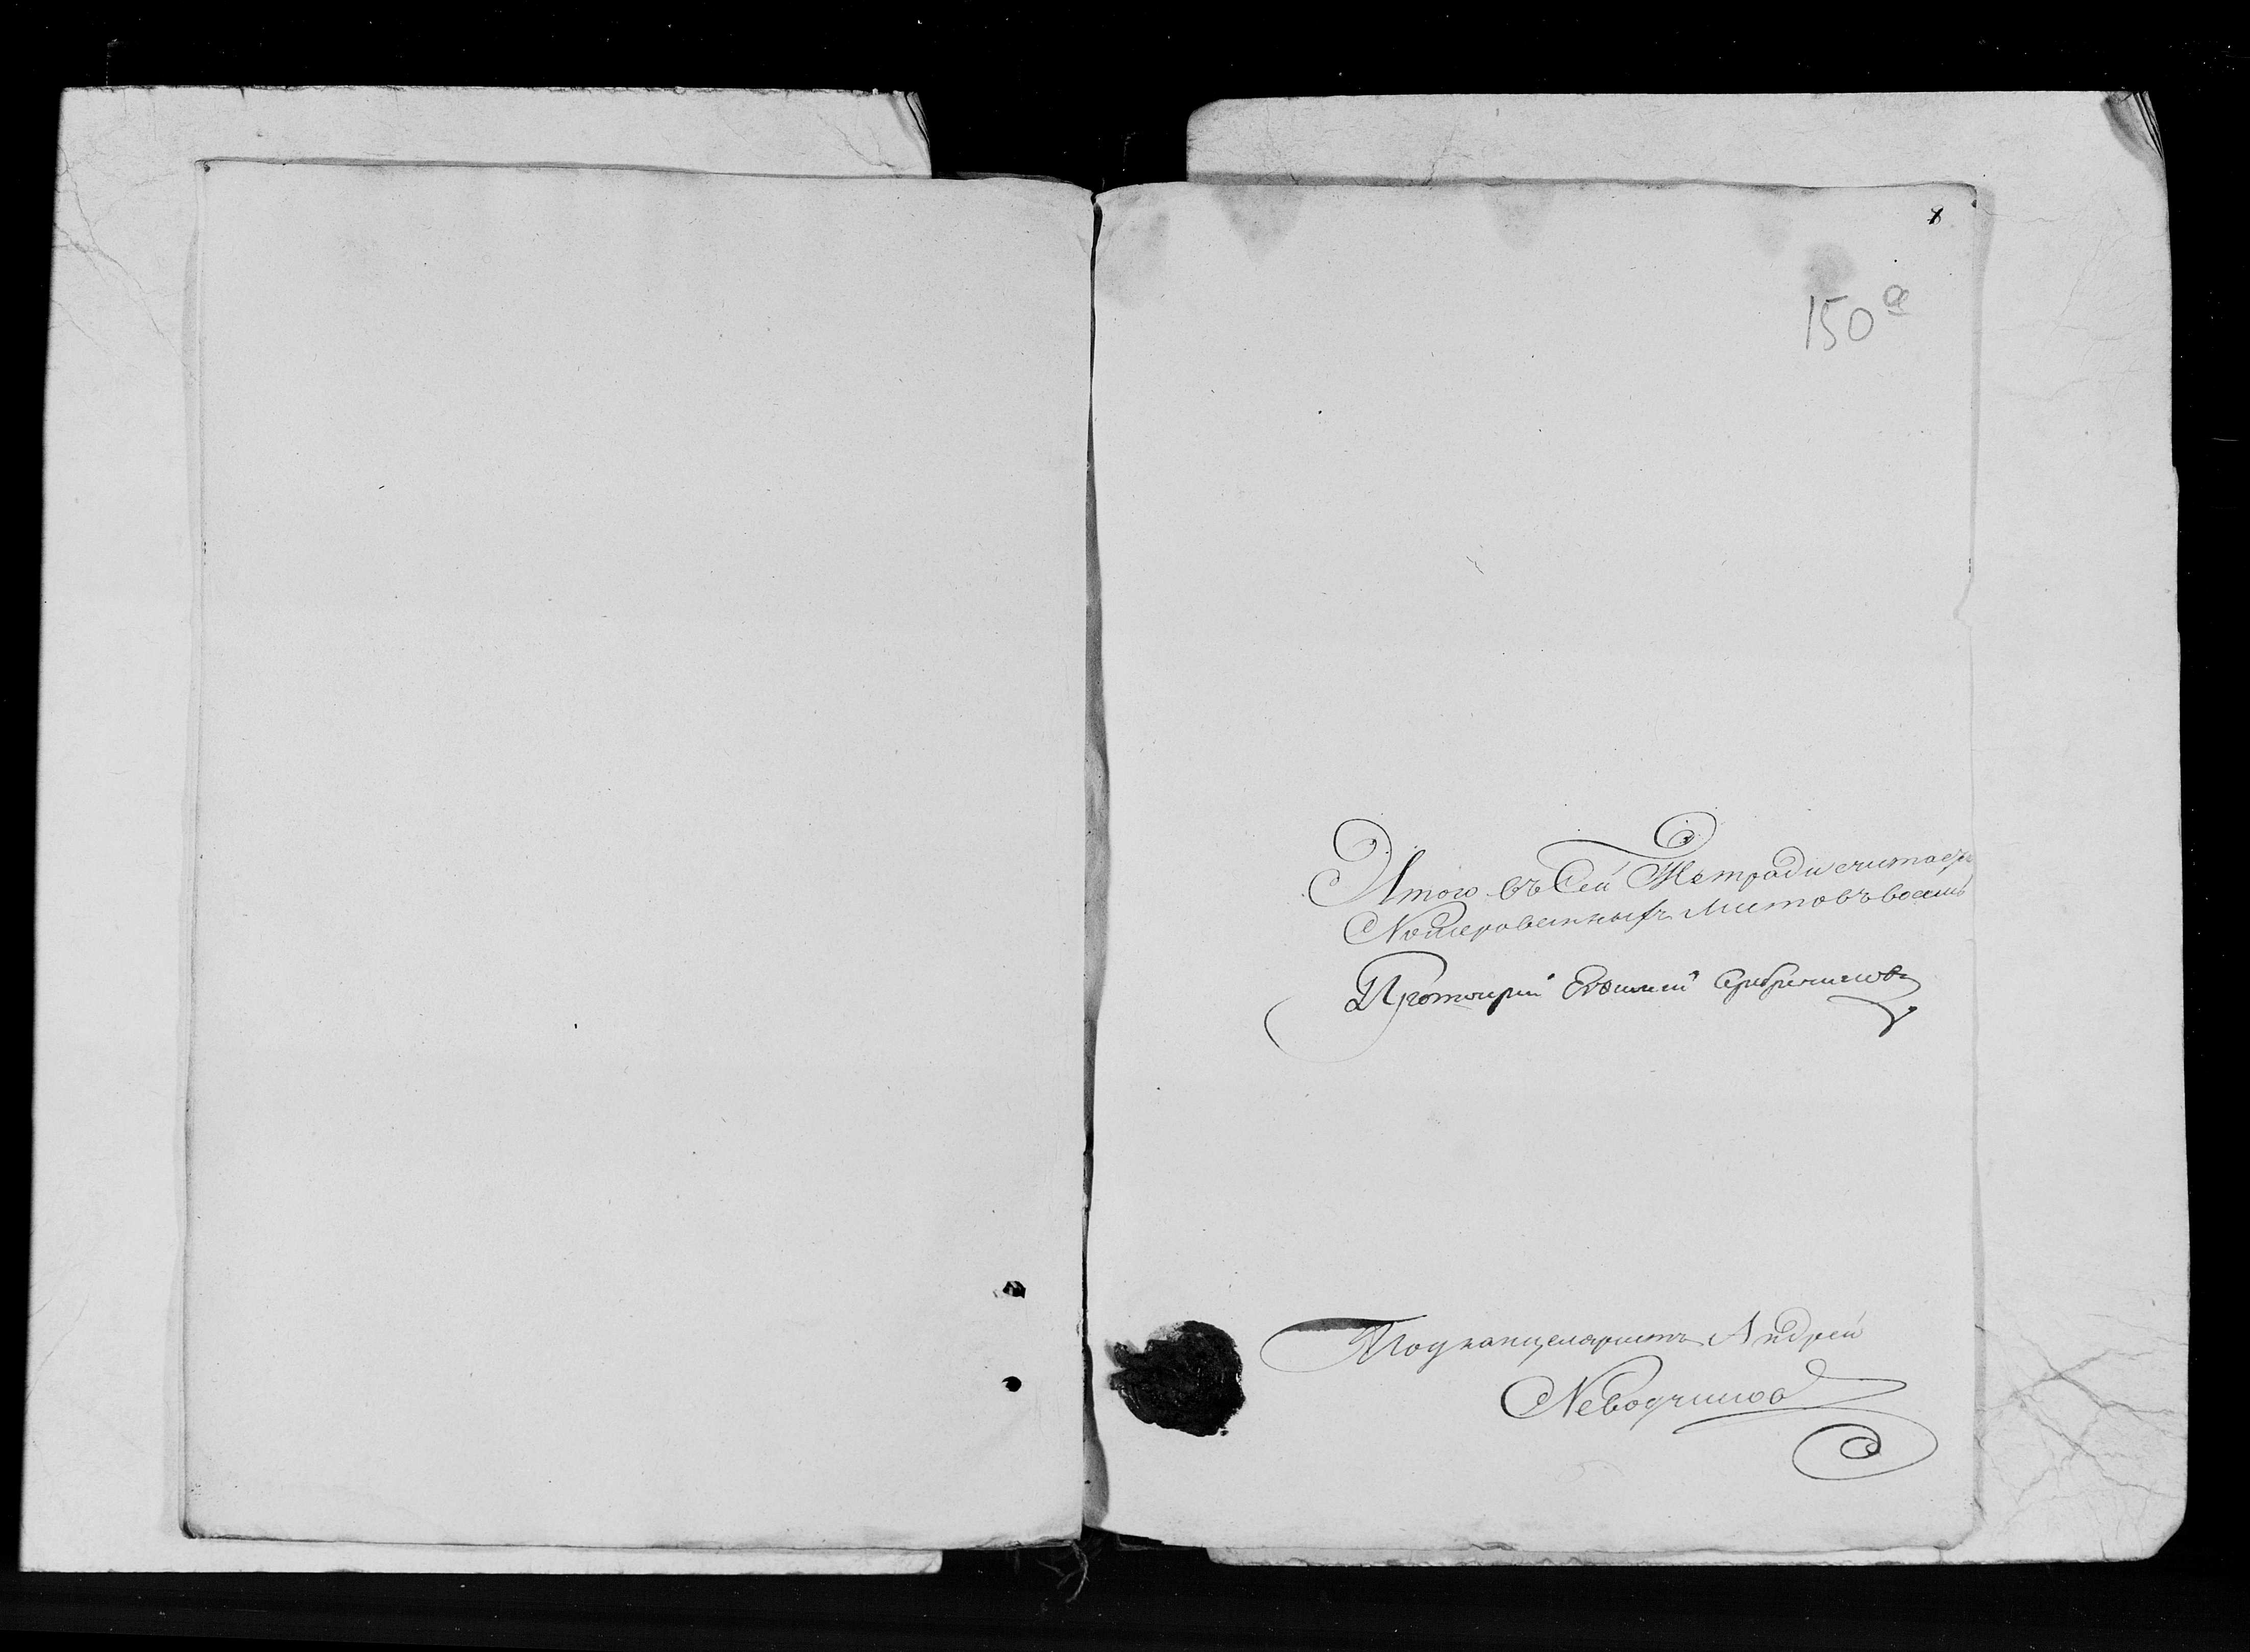 8
150а
Итого въ Сей Тетради считаетъ
Номерованныхъ Листовъ восемь
Протоиерей Евфимий Серебрениковъ
Подканцеляристъ Андрей
Неводчиковъ